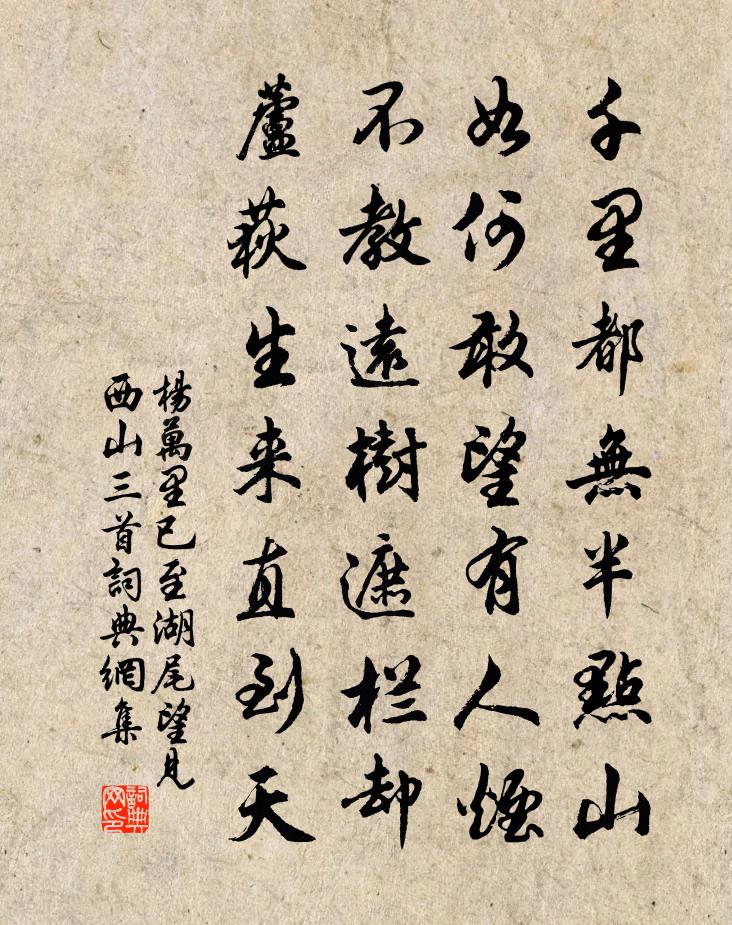 千里都無半點山
如何敢望有人煙
不教遠樹遮栏却
蘆荻生来直到天
楊萬里已至湖尾望見
西山三首詞典網集
詞典
网印